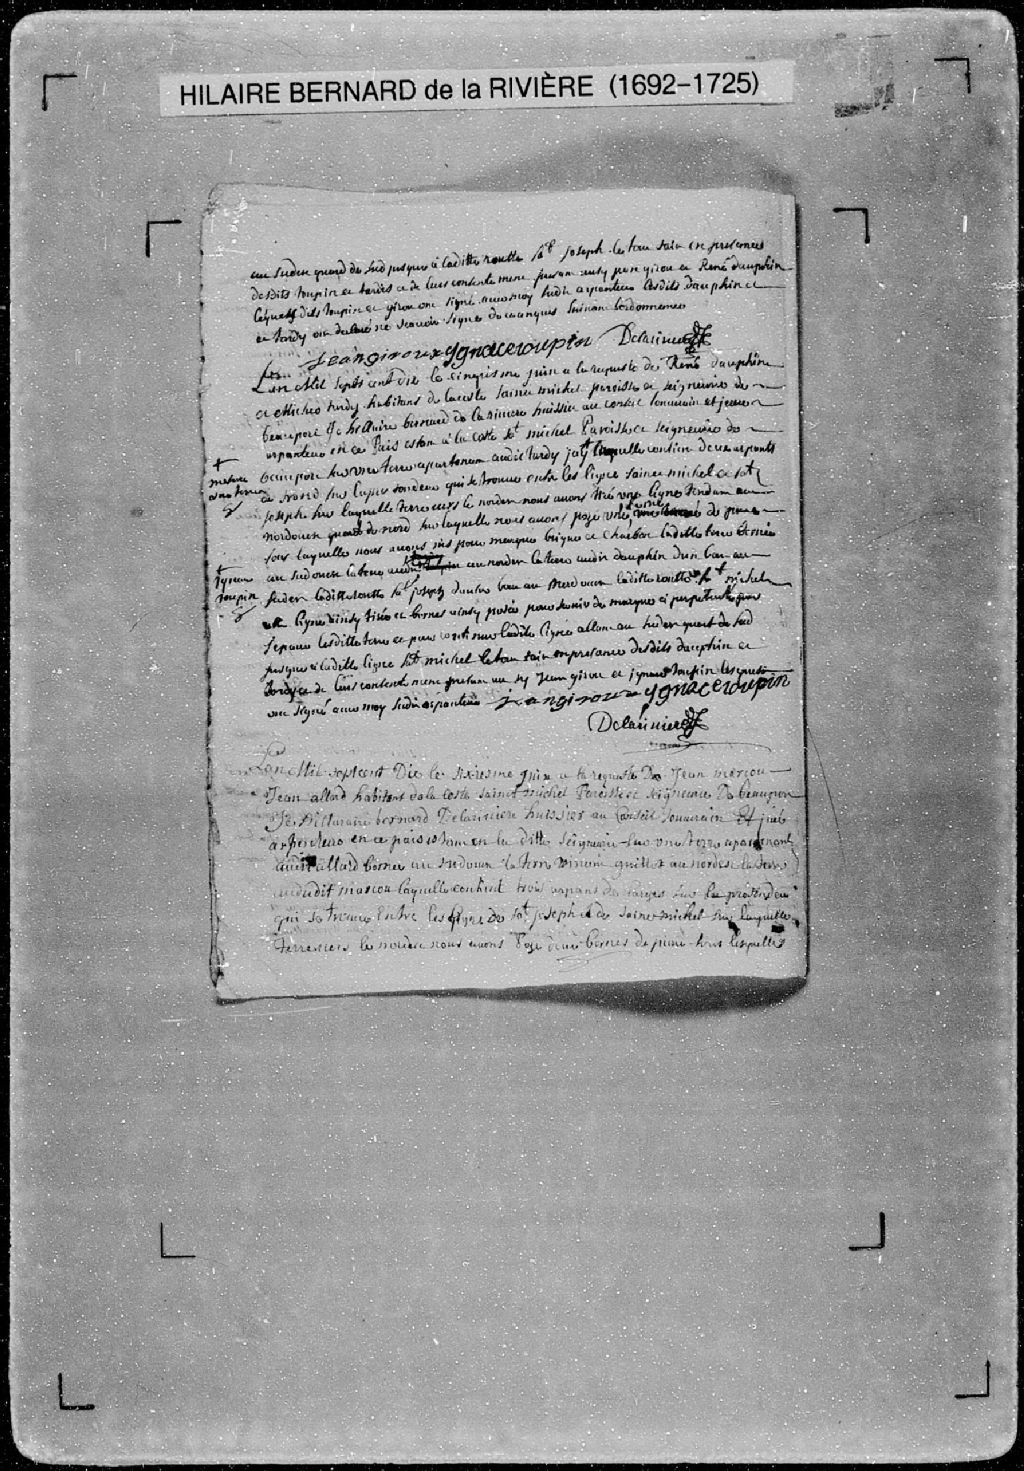 HILAIRE BERNARD de la RIVIÈRE (1692–1725)
au sudest quard de sud jusques a laditte routte st joseph le tout fait en presences
desdits toupin et tardy et de leurs contentement presans ausy jean girou et René dauphin
lesquels dits toupin et girou ont signé avec moy sudit arpanteur lesdits dauphin et
et tardy ont declaré ne scavoir signé de ce anquis suivant lordonnance
jean giroux ygnace toupin Delariviere
Lan Mil sept cent dix le cinqisme juin a la requeste de René dauphin
et Micheo tardy habitans de la coste saint michel paroisse et seigneurie de
beauport Je hilaire bernard de la riviere huissier au conseil souverain et juré
arpanteur en ce pais estan a la coste st michel Paroisse et seigneurie de
beauport sur une terre apartenan audit tardy laquelle contien deux arpants
de frond sur la profondeur qui se trouve entre les lignes saint michel et st
joseph sur laquelle terre vers le nordest nous avons tiré une ligne tendant au
nordouest quard de nord sur laquelle nous avons posé une borne de pierre
sous laquelle nous avons mis pour marque brique et charbon laditte terre bornée
au sudouest la terre audit au nordest la terre audit dauphin dun bout au
sudest laditte routte st joseph dautre bout au nordouest laditte routte st michel
ligne ainsy tirée et bornes ainsy posées pour servir de marque a perpetuité pour
separer lesditte terre et pour continuer laditte ligne allant au sudest quart de sud
jusques a laditte ligne st michel le tout fait en presance desdits dauphin et
tardy et de leurs contentement presans ausy Jean girou et ignace toupin lesquels
ont signé avec moy sudit arpanteur jean giroux ygnace toupin
Delariviere
+
ignace
toupin
Lan Mil sept cent Dix le sixiesme juin a la requeste De Jean marcou
Jean allard habitant de la coste saint michel Paroisse et seigneurie De beauport
Je hillaire bernard Delariviere huissier au Conseil souverain Et juré
arpenteur en ce pais estant en la ditte seigneurie sur une terre apartenant
audit allard bornée au sudouest la terre au nordest la terre
audit marcou laquelle contient trois arpans de larges sur la profondeur
qui se trouve Entre les lignes de st joseph et de saint michel sur laquelle
terre vers le nordest nous avons Posé deux bornes de pierre sous lesquelles